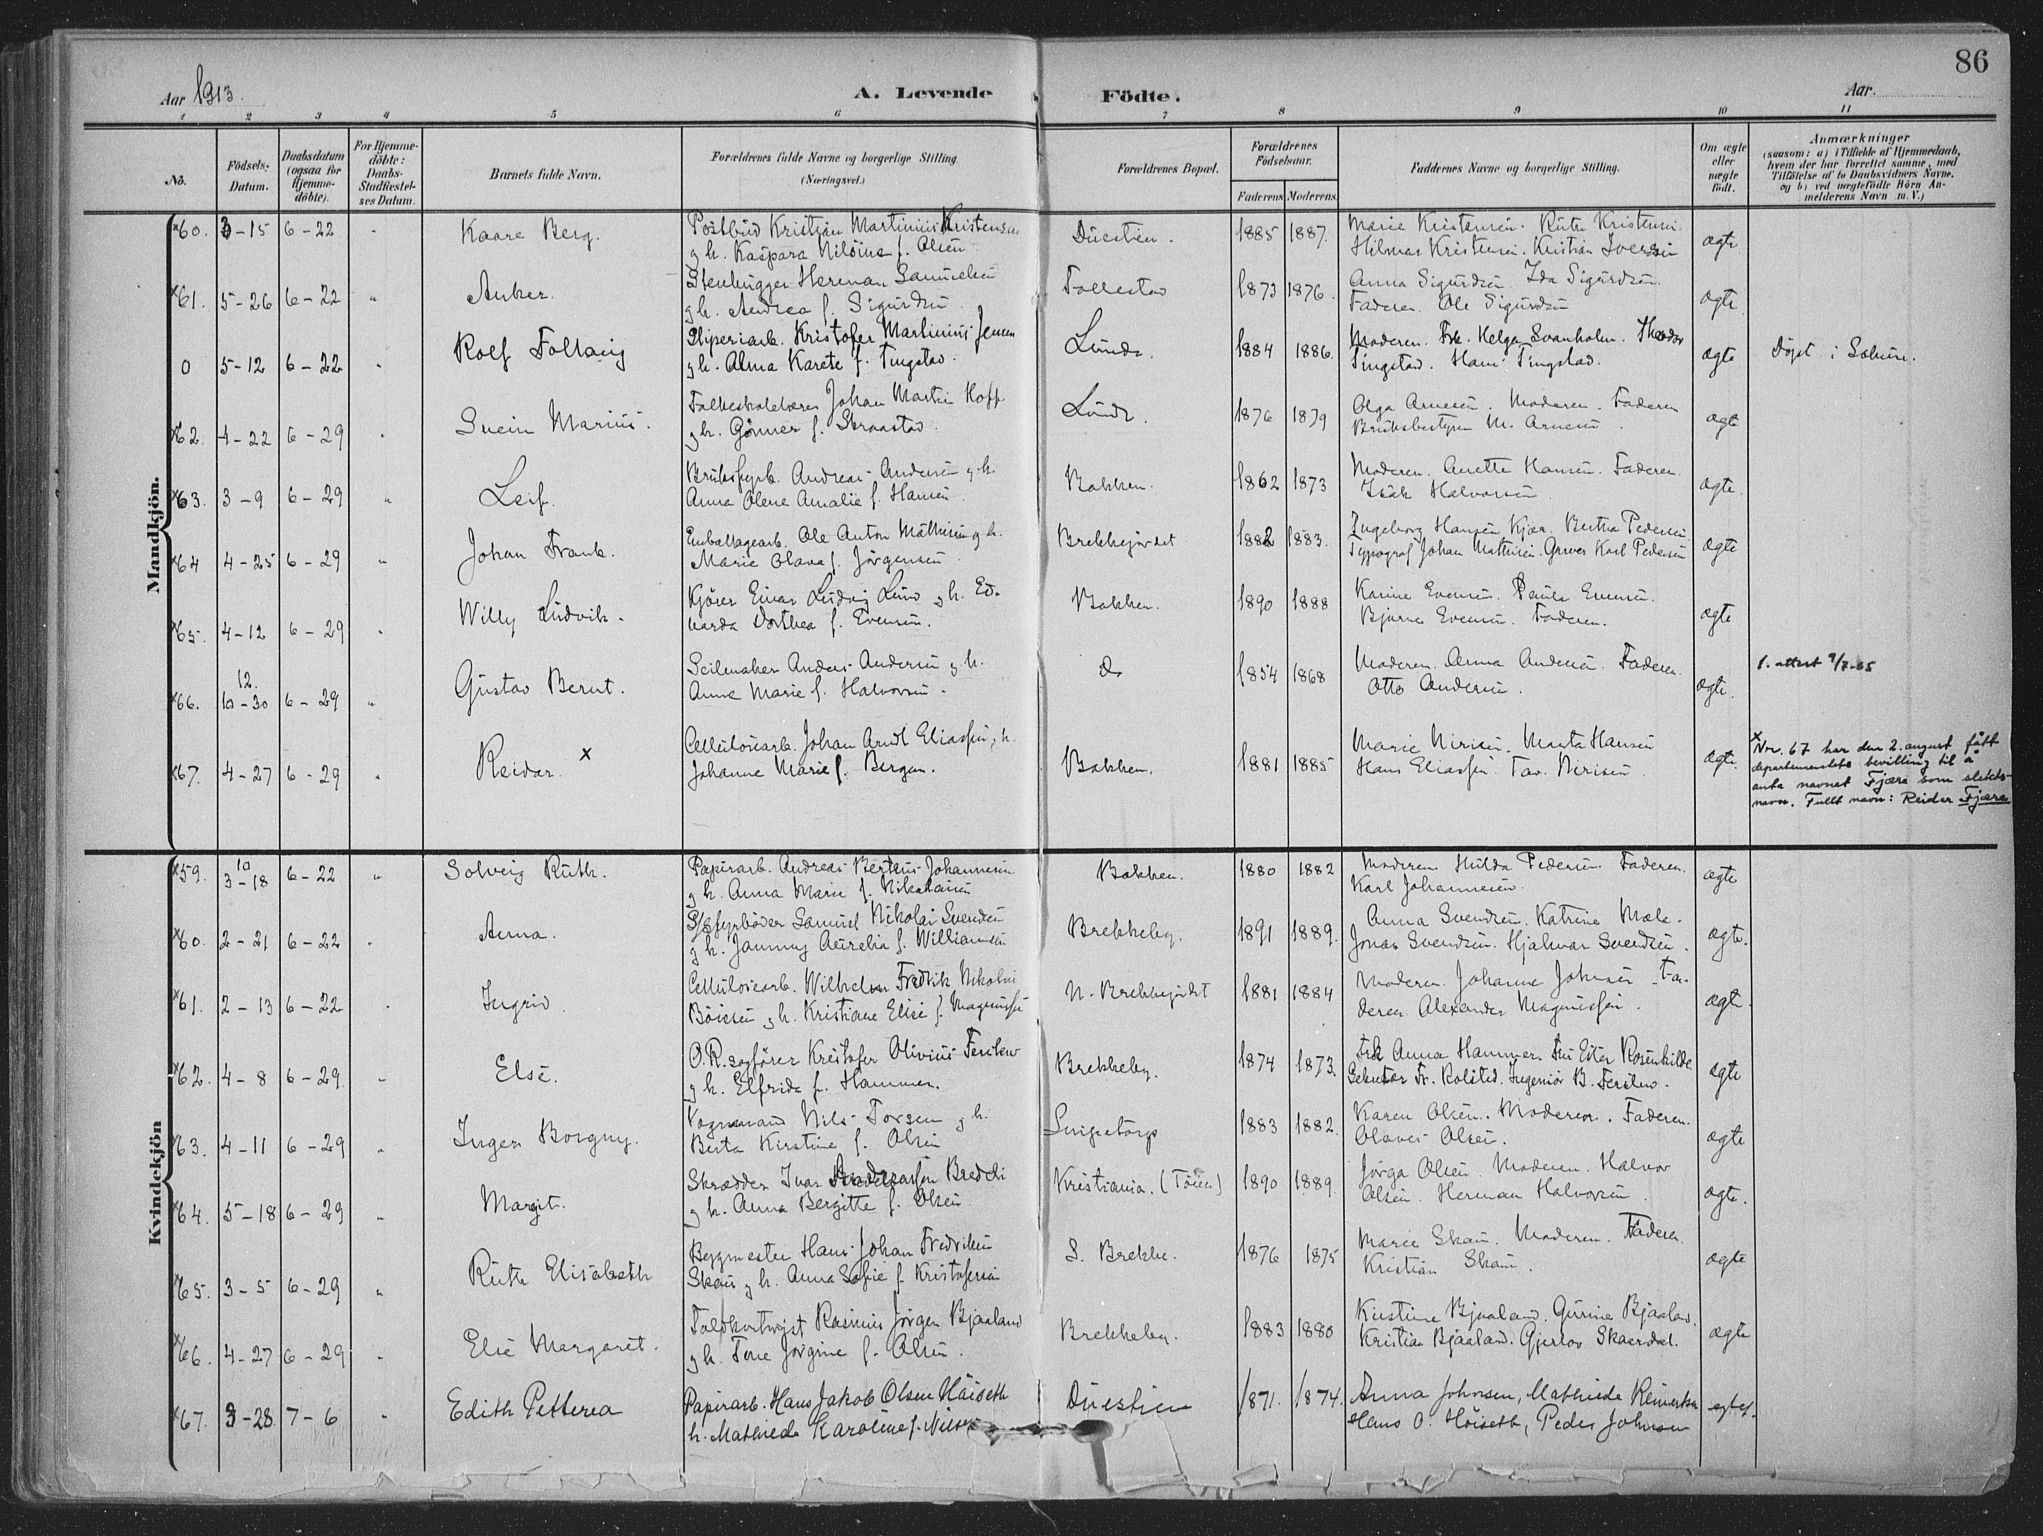 86
Aar 1913.
A. Levende Födte.
Aar.
1 2 3 4 5 6 7 8 9 10 11
No.
Födsels-Datum.
Daabsdatum (ogsaa for Hjemme-döbte).
For Hjemme-döbte: Daabs-Stadfæstel-ses Datum.
Barnets fulde Navn.
Forældrenes fulde Navne og borgerlige Stilling
(Næringsvei.)
Forældrenes Bopæl.
Forældrenes Födselsaar.
Faderens Moderens
Faddernes Navne og borgerlige Stilling.
Om ægte eller uægte födt.
Anmærkninger
(saasom: a) i Tilfælde af Hjemmedaab, hvem der har forrettet samme, med Tilföielse af to Daabsvidners Navne. og b) ved uægtefödte Börn An-melderens Navn m. V.)
Mandkjön.
60. 3-15 6-22 " Kaare Berg. Postbud Kristian Martinius Kristensen Duestien. 1885 1887. Marie Kristensen. Ruth Kristensen. ægte
g h. Kaspara Nilsine f. Olsen Hilmar Kristensen. Kristian Iversen
61. 5-26 6-22 " Anker. Stenhugger Herman Samuelsen Follestad 1873 1876. Anna Sigurdsen. Ida Sigurdsen. ægte
g h. Andrea f. Sigurdsen Faderen. Ole Sigurdsen
0 5-12 6-22 " Rolf Follaug Sliperiarb. Kristofer Martinius Jensen Lunde. 1884 1886. Moderen. Frk. Helga Svanholm. Theodor ægte Döpt i Solum.
g h. Alma Karete f. Tingstad. Tingstad. Hans Tingstad.
62. 4-22 6-29 " Svein Marius. Folkeskolelærer Johan Martin Hopp Lunde 1876 1879 Olga Arnesen. Moderen. Faderen ægte
g h. Gunner f. Straastad. Bruksbestyrer M. Arnesen
63. 3-9 6-29 " Leif. Andreas Andersen g h. Bakken. 1862 1873 Moderen. Anette Hansen. Faderen. ægte
Anna Olene Amalie f. Hansen. Isak Halvorsen
64 4-25 6-29 " Johan Frank. Emballagearb. Ole Anton Mathisen g h. Brekkejordet 1882 1883. Ingeborg Hansen Kjær. Bertha Pedersen ægte
Marie Olava f. Jörgensen Typograf Johan Mathisen. Graver Karl Pedersen
65. 4-12 6-29 " Willy Ludvik. Kjörer Einar Ludvig Lund g h. Ed- Bakken. 1890 1888 Karine Evensen. Paula Evensen. ægte
varda Dorthea f. Evensen. Bjarne Evensen. Faderen.
66. 12. 10-30 6-29 " Gustav Bernt. Seilmaker Anders Andersen g h. do 1854 1868 Moderen. Anna Andersen. Faderen. ægte. 1. attest 9/7-35
Anne Marie f. Halvorsen. Otto Andersen.
67. 4-27 6-29 " Reidar. x Cellulosearb. Johan Arndt Eliassen g h. Bakken. 1881 1885 Marie Nirisen. Marta Hansen ægte.
Johanne Marie f. Bergan. Hans Eliassen. Tov. Nirisen.
x Nr. 67 har den 2. august fått
departementets bevilling til å
anta navnet Fjære som slekts-
navn. Fullt navn: Reidar Fjære
Kvindekjön
59. 10 3-18 6-22 " Solveig Ruth. Papirarb. Andreas Berteus Johannesen Bakken. 1880 1882 Moderen Hulda Pedersen Faderen. ægte
g h. Anna Marie f. Nikolaisen Karl Johannesen.
60. 2-21 6-22 " Anna. Samuel Nikolai Svendsen Brekkeby. 1891 1889. Anna Svendsen. Katrine Mæle. ægte.
g h. Jammy Aurelia f. Williamsen Jonas Svendsen. Hjalmar Svendsen.
61. 2-13 6-22 " Ingrid. Cellulosearb. Wilhelm Fredrik Nikolai N. Brekkejordet 1881 1884 Moderen. Johanne Johnsen. Fa- ægte.
Böiesen g h. Kristiane Elise f. Magnussen deren. Alexander Magnussen.
62. 4-8 6-29 " Else. O.R.sagförer Kristofer Olivius Fersteew Brekkeby. 1874 1873. Frk Anna Hammer. Fru Ester Rosenkilde. ægte
g h. Elfrida f. Hammer. Fr. Rolsted. Ingeniör B.
63. 4-11 6-29 " Inger Borgny. Vognmand Nils Torsen g h. 1883 1882. Karen Olsen. Moderen. Faderen. ægte
Berta Kirstine f. Olsen Olaves Olsen.
64. 5-18 6-29 " Margit. Skrædder Ivar Andreassen Kristiania. (Töien) 1890 1889. Jörga Olsen. Moderen. Halvor ægte.
g h. Anna Bergitte f. Olsen Olsen. Herman Halvorsen.
65. 3-5 6-29 " Ruth Elisabeth Byggmester Hans Johan Fredriksen S. Brekke. 1876 1875 Marie Skau. Moderen. Faderen. ægte
Skau g h. Anna Sofie f. Kristofersen Kristian Skau.
66. 4-27 6-29 " Else Margaret. Rasmus Jörgen Bjaaland Brekkeby. 1883 1880 Kirstine Bjaaland. Gurine Bjaaland. ægte
g h. Tone Jörgine f. Olsen. Kristian Bjaaland. Gjertov Skaardal.
67. 3-28 7-6 " Edith Petterea Papirarb. Hans Jakob Olsen Höiseth Duestien 1871. 1874. Anna Johnsen, Mathilde Reinertsen
h. Mathilde Karoline f. Nilsen Hans O. Höiseth, Peder Johnsen